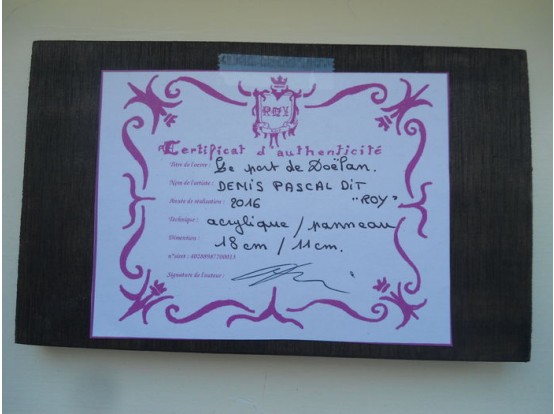 ROY
Certificat d'authenticité
Titre de l'œuvre : Le port de Doëlan.
Nom de l'artiste : DENIS PASCAL DIT
"ROY"
Année de réalisation : 2016
Technique : acrylique / panneau
Dimension : 18 cm / 11 cm.
n°siret : 40200987200013
Signature de l'auteur :